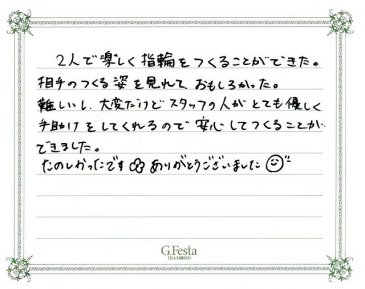 2人で楽しく指輪をつくることができた。
相手のつくる姿を見れて、おもしろかった。
難しいし、大変だけどスタッフの人がとても優しく
手助けをしてくれるので安心してつくることが
できました。
たのしかったです ありがとうございました
G.Festa
DIAMOND